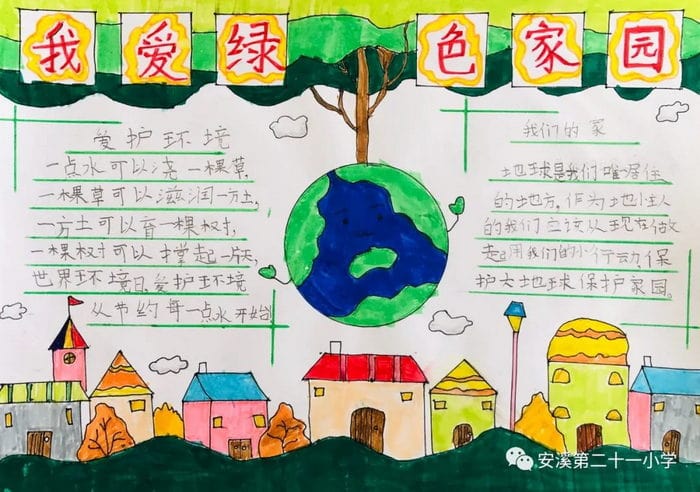 我爱绿色家园
爱护环境
一点水可以浇一棵草,
一棵草可以滋润一方土,
一方土可以育一棵树,
一棵树可以撑起一片天,
世界环境日,爱护环境
从节约每一点水开始!
我们的家
地球是我们唯居住
的地方。作为地球小主人
的我们应该从现在做
起用我们的小行动,保
护大地球保护家园。
安溪第二十一小学